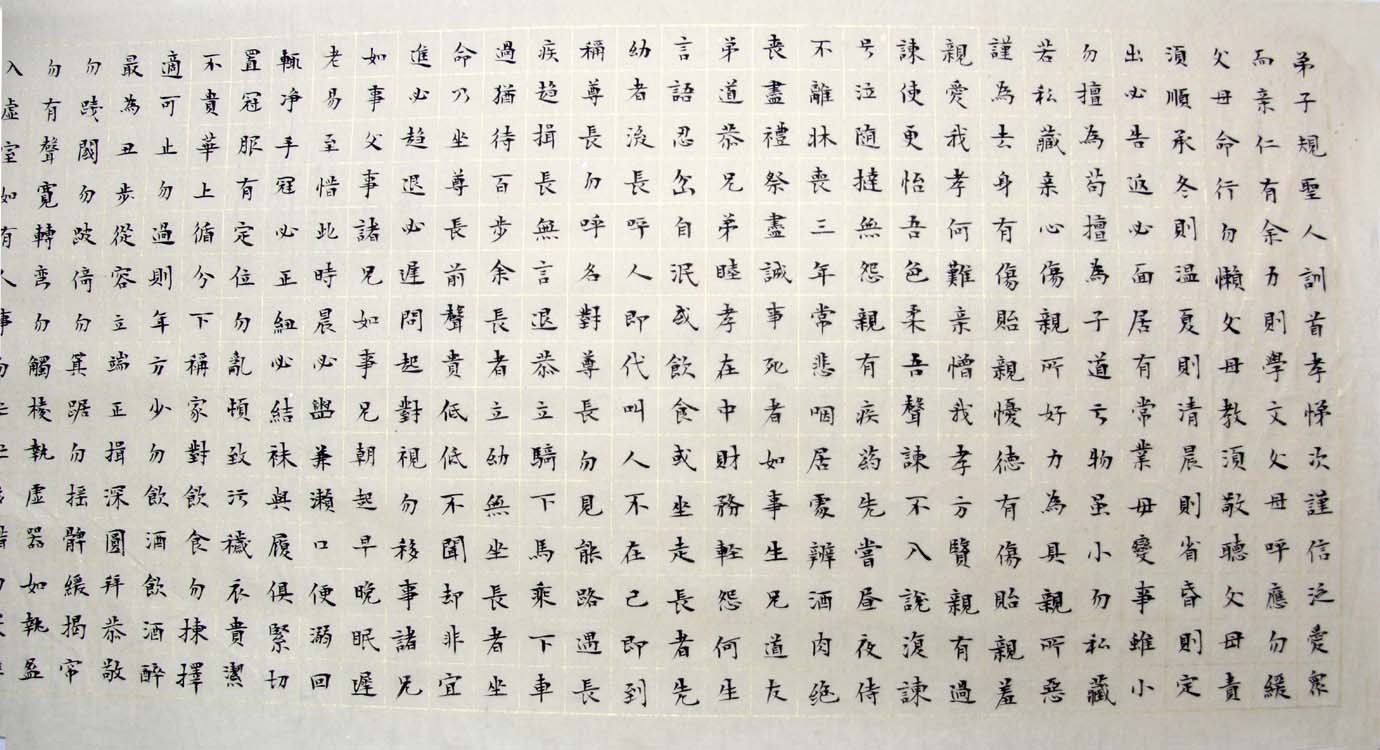 弟子規聖人訓首孝悌次謹信泛愛眾
而亲仁有余力則學文父母呼應勿緩
父母命行勿懶父母教須敬聽父母責
須順承冬則温夏則清晨則省昏則定
出必告返必面居有常業毋變事雖小
勿擅為苟擅為子道亏物虽小勿私藏
若私藏亲心傷親所好力為具親所惡
謹為去身有傷貽親懮德有傷貽親羞
親愛我孝何難亲憎我孝方賢親有過
諫使更怡吾色柔吾聲諫不入說復諫
号泣随撻無怨親有疾药先嘗昼夜侍
不離牀喪三年常悲咽居處辨酒肉绝
喪盡禮祭盡誠事死者如事生兄道友
弟道恭兄弟睦孝在中財務軽怨何生
言語忍忿自泯或飲食或坐走長者先
幼者後長呼人即代叫人不在己即到
稱尊長勿呼名對尊長勿見能路遇長
疾趨揖長無言退恭立騎下馬乘下車
過猶待百步余長者立幼無坐長者坐
命乃坐尊長前聲貴低低不聞却非宜
進必趨退必遲問起對視勿移事諸兄
如事父事諸兄如事兄朝起早晚眠遲
老易至惜此時晨必盥兼漱口便溺回
輒净手冠必正紐必結袜與履俱緊切
置冠服有定位勿亂頓致污穢衣貴潔
不貴華上循分下稱家對飲食勿揀擇
適可止勿過則年方少勿飲酒飲酒醉
最為丑步從容立端正揖深圓拜恭敬
勿踐閾勿跛倚勿箕踞勿摇髀緩揭帘
勿有聲寬轉弯勿觸棱執虛器如執盈
入虛室如有人事